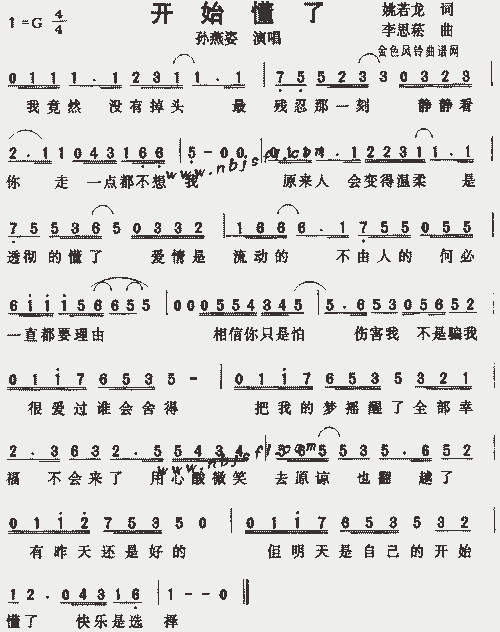 开始懂了
1=G 4/4
姚若龙 词
孙燕姿 演唱
李思菘 曲
金色风铃曲谱网
0 1 1 1 · 1 2 3 1 1 · 1 | 7 5 5 2 3 3 0 3 2 3
我竟然 没有掉头 最 残忍那一刻 静静看
2 · 1 1 0 4 3 1 6 6 | 5 - 0 0
你 走 一点都不想 我 原来人 会变得温柔 是
www.nbjsfl.com
7 5 5 3 6 5 0 3 3 2 | 1 6 6 6 · 1 7 5 5 0 5 5
透彻的懂了 爱情是 流动的 不由人的 何必
6 1 1 1 5 6 6 5 5 | 0 0 0 5 5 4 3 4 5 | 5 · 6 5 3 0 5 6 5 2
一直都要理由 相信你只是怕 伤害我 不是骗我
0 1 1 7 6 5 3 5 - | 0 1 1 7 6 5 3 5 3 2 1
很爱过谁会舍得 把我的梦摇醒了全部幸
2 · 3 6 3 2 · 5 5 4 3 4
福 不会来了 用心酸微笑 去原谅 也翻 越了
www.nbjsfl.com
0 1 1 2 7 5 3 5 0 | 0 1 1 7 6 5 3 5 3 2
有昨天还是好的 但明天是自己的开始
1 2 · 0 4 3 1 6 | 1 - - 0
懂了 快乐是选 择